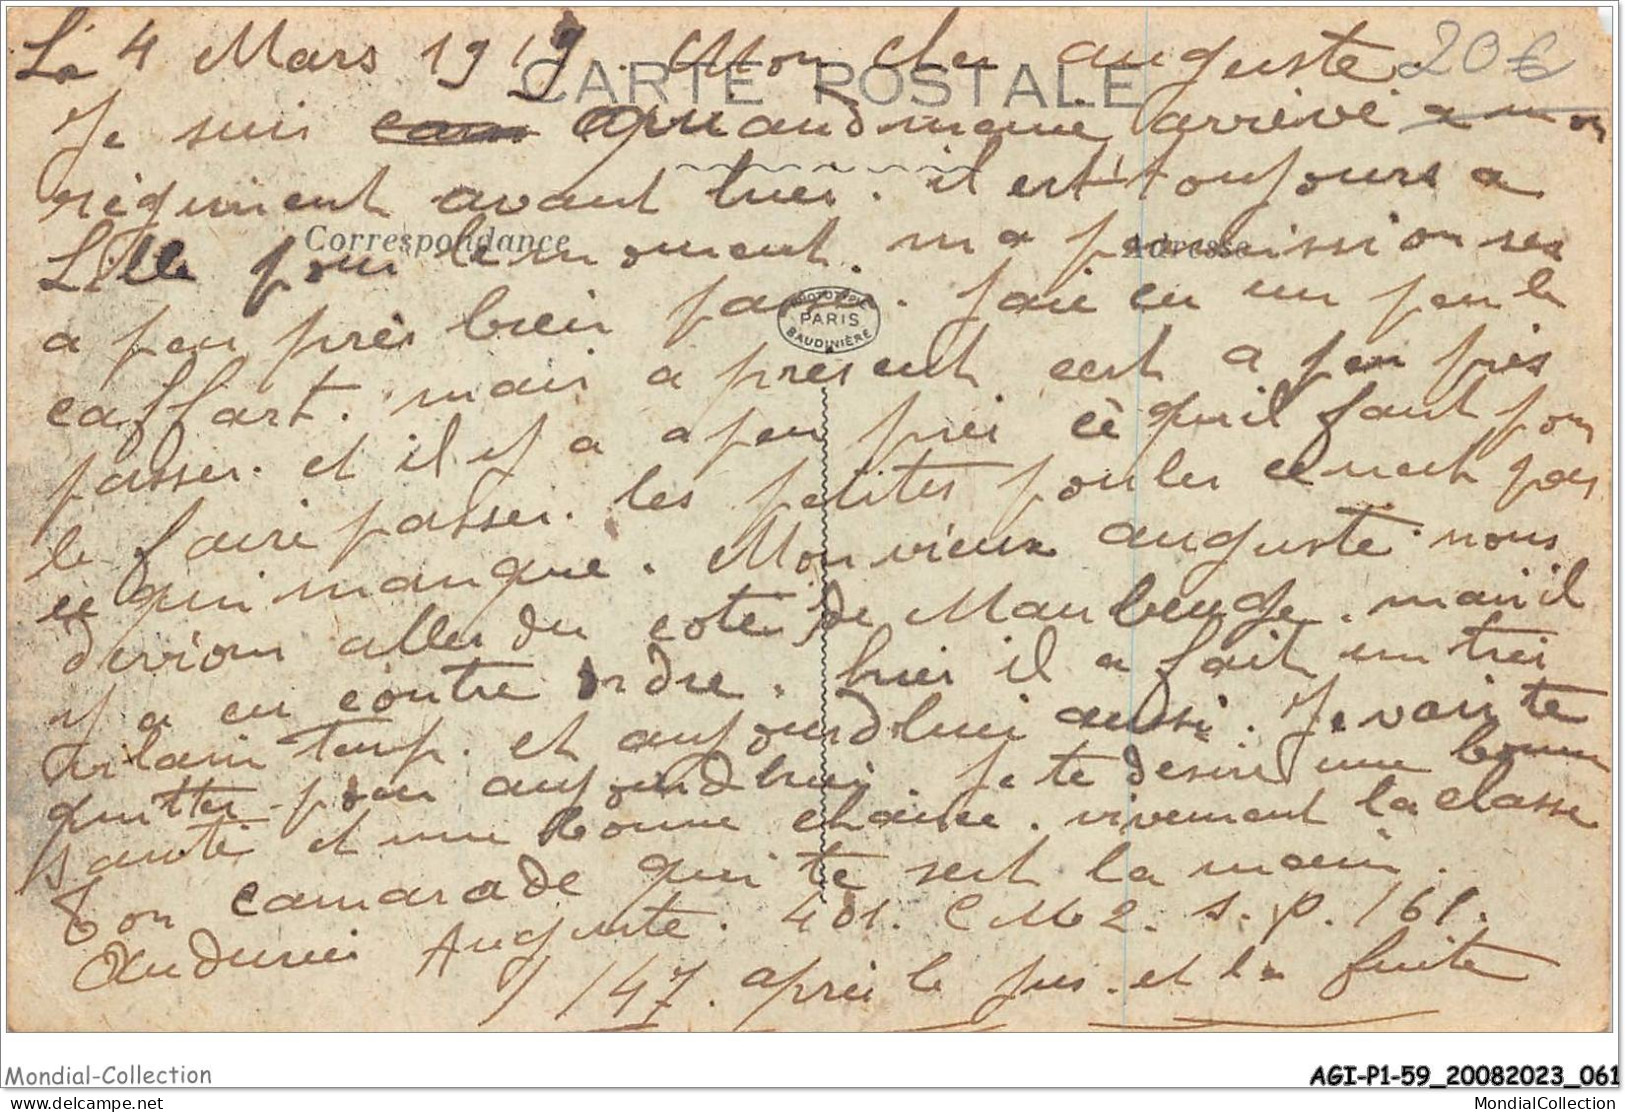 Le 4 Mars 1919. Mon cher auguste. 20 €
CARTE POSTALE
Je suis quandmeme arrivé a mon
régiment avant hier. il est toujours a
Correspondance
Adresse
Lille pour le moment. ma permission ses
a peu près bien passé. jai eu un peu le
PHOTOTYPIE PARIS BAUDINIÈRE
caffart. mais a présent cest a peu près
passer. et il y a a peu près cè quil faut pour
le faire passer. les petites poules ce nest pas
ce qui manque. Mon vieux auguste nous
devions aller du coté de Maubeuge. mais il
y a eu contre ordre. hier il a fait un très
vilain temp. et aujourdhui aussi. Je vais te
quitter pour aujourdhui. Je te desire une bonne
santé et une bonne chance. vivement la classe
Ton camarade qui te sert la main.
Auguste. 401. C M 2. S. P. 161.
1/147. après le jus. et la fuite
Mondial-Collection
AGI-P1-59_20082023_061
www.delcampe.net
MondialCollection